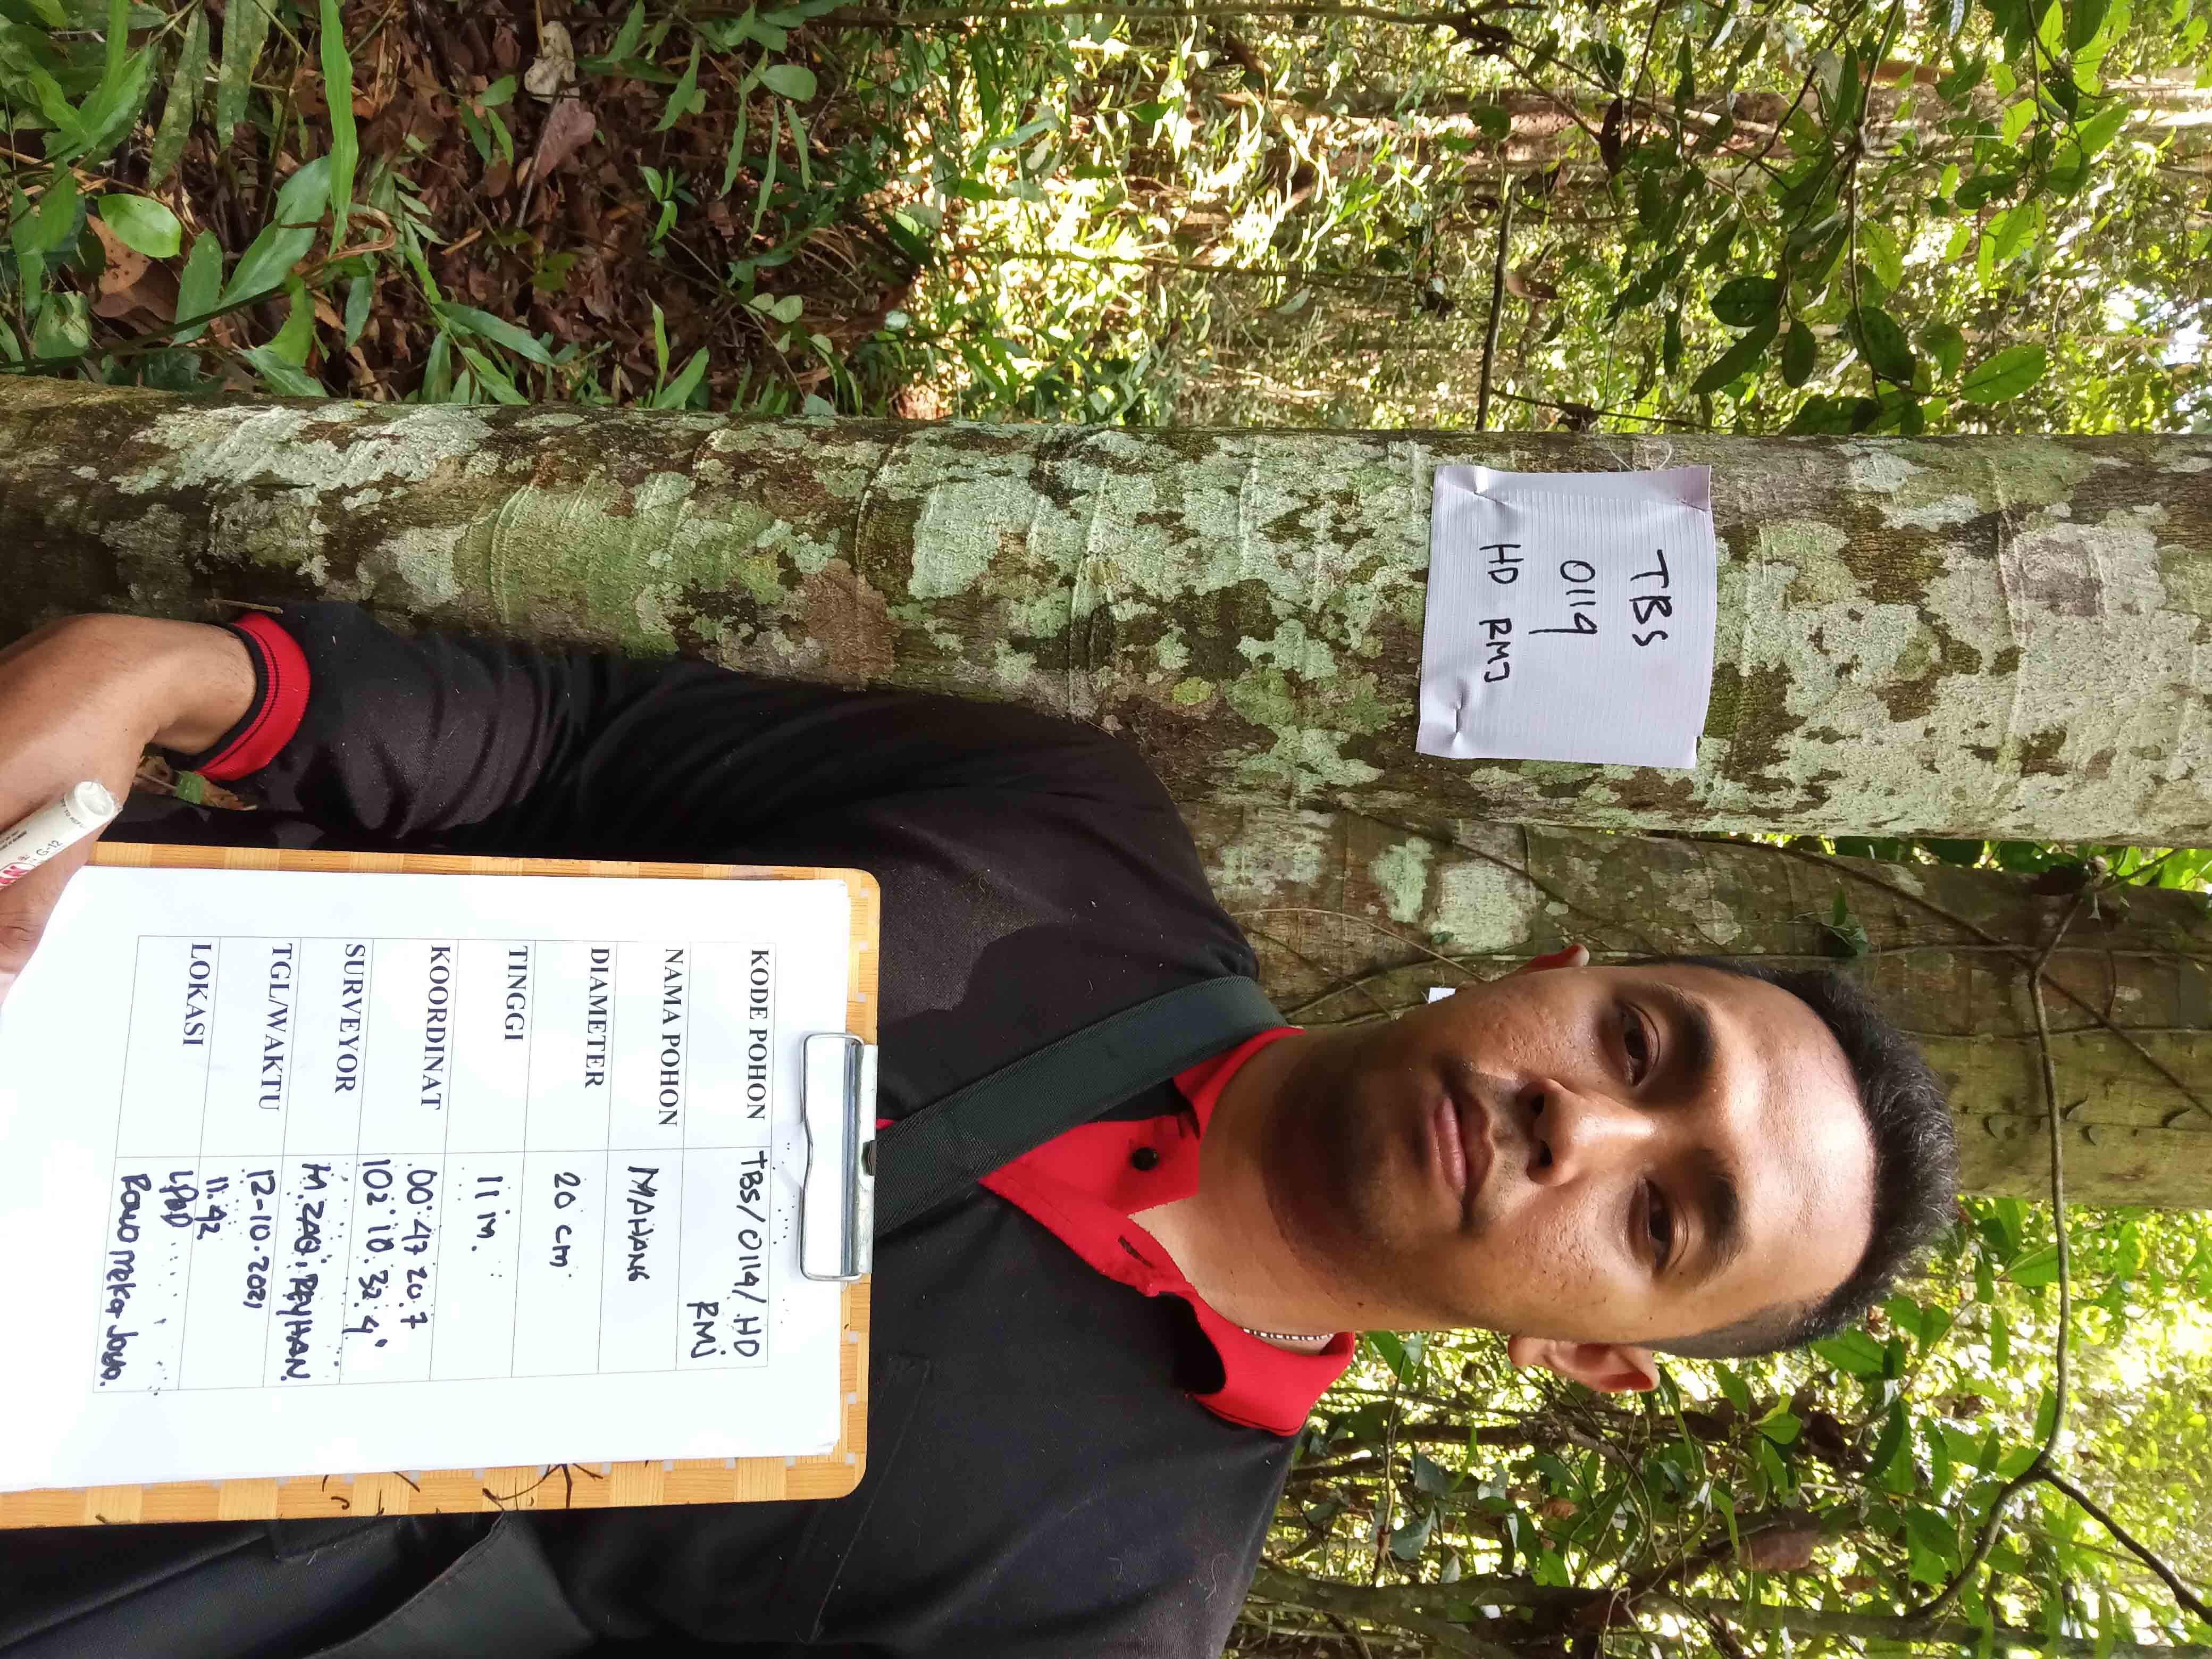 TBS
0119
HD RMJ
KODE POHON TBS/0119/HD
RMJ
NAMA POHON MAHANG
DIAMETER 20 cm
TINGGI 11 m.
KOORDINAT 00.47 20.7
102.10.32.4"
SURVEYOR M.ZAQI, REYHAN
TGL/WAKTU 12-10-2021
11.42
LOKASI LPHD
G-12